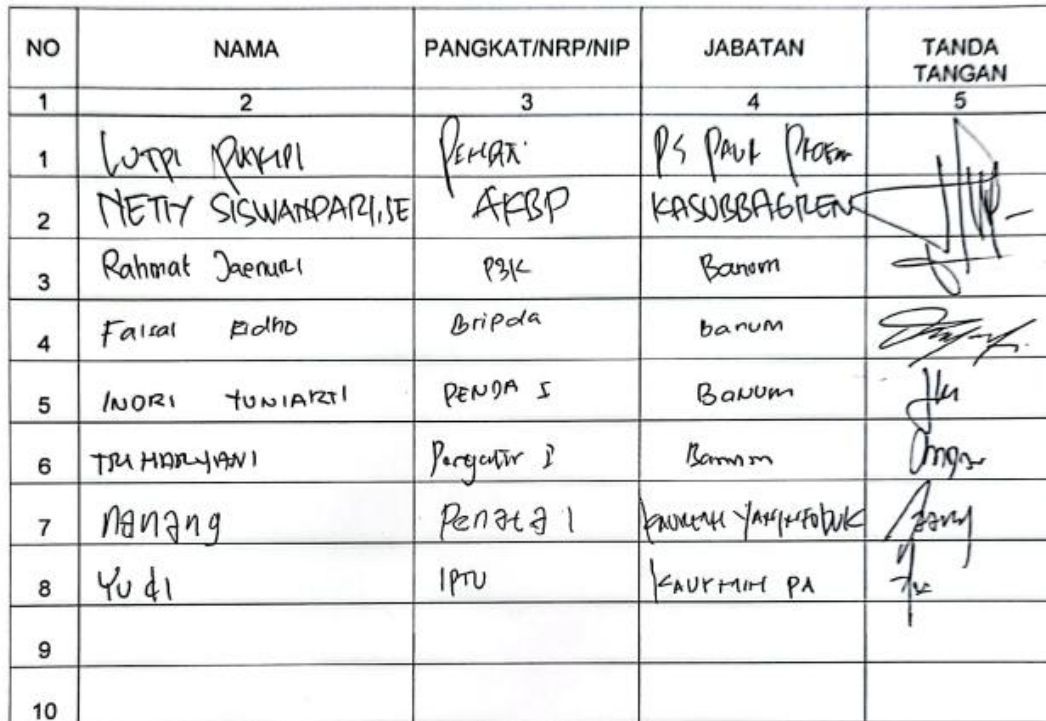 NO NAMA PANGKAT/NRP/NIP JABATAN TANDA
TANGAN
1 2 3 4 5
1 PS PAUR
2 NETTY SISWANDARI,SE AKBP KASUBBAGREN
3 Rahmat Jaenuri P3K Banum
4 Faisal Ridho Bripda banum
5 INDRI YUNIARTI PENDA I Banum
6 TRI HARYANI Pengatur I Banum
7 nanang Penata 1
8 Yudi IPTU KAURMIN PA
9
10